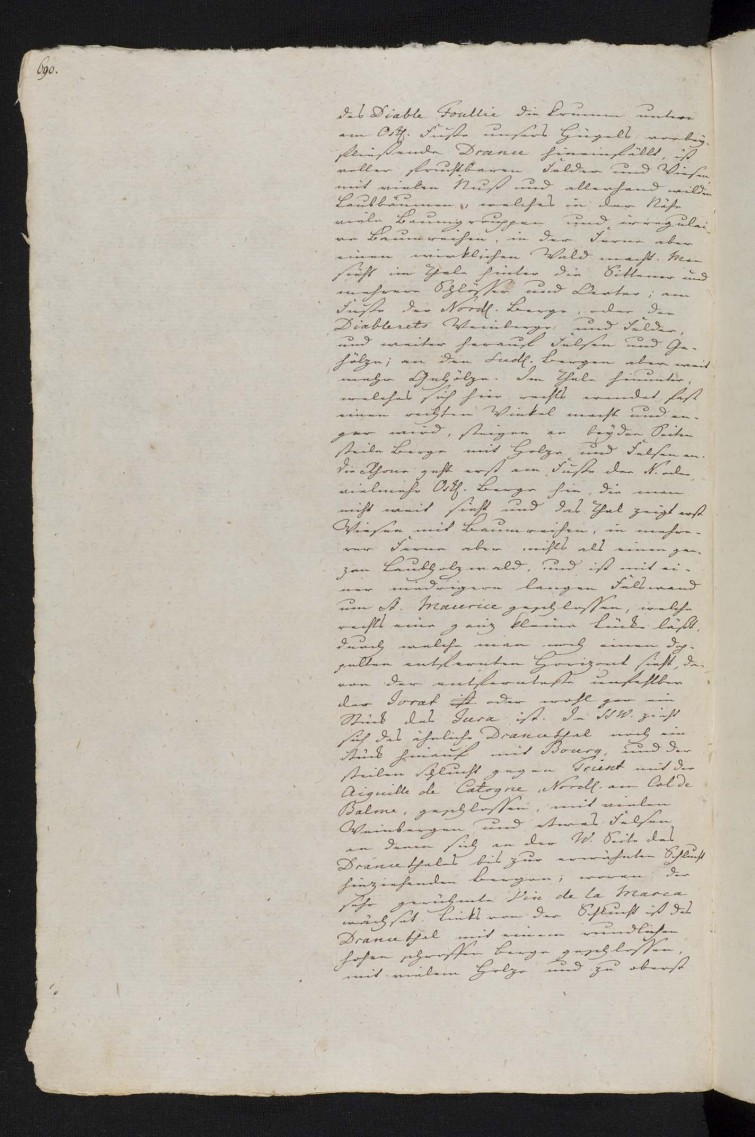 690.
des Diable Foullie die krumm unten
am Östl. Fuße unsers Hügels vorbey-
fließende Drance hineinfällt, ist
voller fruchtbaren Felder und Wiesen
mit vielen Nuß und allerhand wilden
Laubbäumen, welches in der Nähe
viele Baumgruppen und irregulai-
re Baumreihen, in der Ferne aber
einen wirklichen Wald macht. Man
sieht im Thale hinter die Sittener und
mehrere Schlösser und Oerter; am
Fuße der Nördl. Berge, oder der
Diablerets Weinberge und Felder,
und weiter herauf Felsen und Ge-
hölze; an den Südl. Bergen aber weit
mehr Gehölze. Im Thale hinunter,
welches sich hier rechts wendet, fast
einen rechten Winkel macht und en-
ger wird, steigen an beyden Seiten
steile Berge mit Holze und Felsen an.
Die Rhone geht erst am Fuße der N. oder
vielmehr Östl. Berge hin, die man
nicht weit sieht und das Thal zeigt erst
Wiesen mit Baumreihen, in mehre-
rer Ferne aber nichts als einen gan-
zen Laubholzwald, und ist mit ei-
ner niedrigern langen Felswand
um St. Maurice geschlossen, welche
rechts eine ganz kleine Lücke läßt,
durch welche man noch einen dop-
pelten entfernten Horizont sieht, da-
von der entfernteste unfehlbar
der Jorat ist oder wohl gar ein
Stück des Jura ist. In SW. zieht
sich das ähnliche Drancethal noch ein
Stück hinauf mit Bourg, und der
steilen Schlucht gegen Trient mit der
Aiguille de Catogne, Nördl. am Col de
Balme, geschlossen, mit vielen
Weinbergen und etwas Felsen
an denen sich an der W. Seite des
Drancethales bis zur erwähnten Schlucht
hinziehenden Bergen; woran der
sehr gerühmte Vin de la Marca
wächset. Links von der Schlucht ist das
Drancethal mit einem rundlichen
hohen schroffen Berge geschlossen,
mit vielem Holze und zu oberst